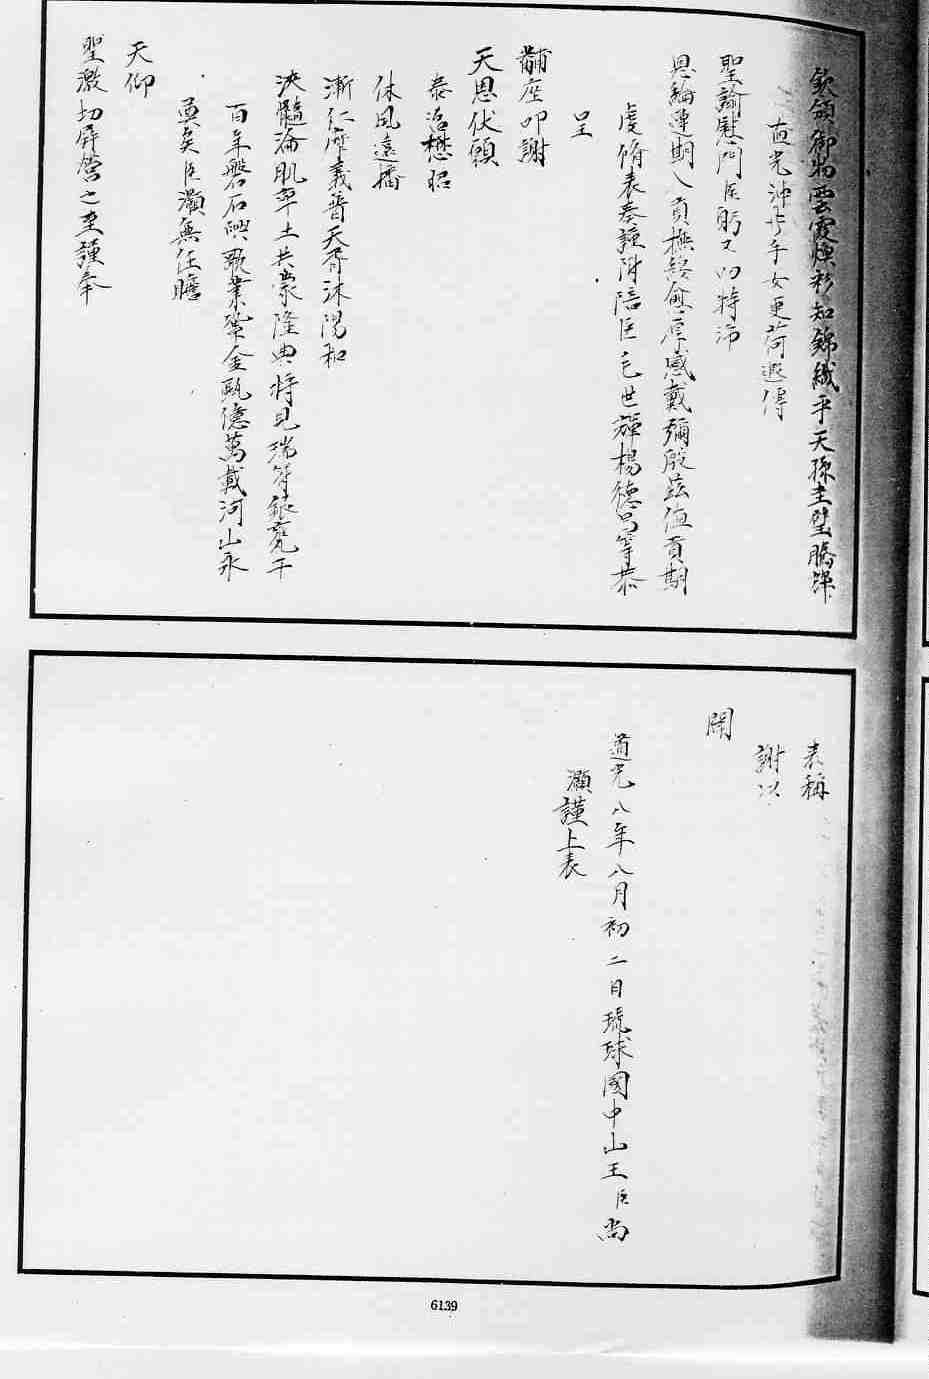 欽頒御物雲霞煥彩知錦織乎天孫圭璧騰輝
直光沖斗牛女更荷遐傳
聖諭慰問臣躬又以特沛
恩綸連期入貢撫綏愈厚感戴彌殷茲値貢期
虔脩表奏謹附陪臣毛世輝楊德昌等恭
呈
黼座叩謝
天恩伏願
泰治懋昭
休風遠播
漸仁摩義普天胥沐陽和
浹髓淪肌率土共蒙隆典將見瑞符銀甕千
百年磐石興歌業鞏金甌億萬載河山永
奠矣臣灝無任瞻
天仰
聖激切屏營之至謹奉
表稱
謝以
聞
道光八年八月初二日琉球國中山王臣尚
灝謹上表
6139